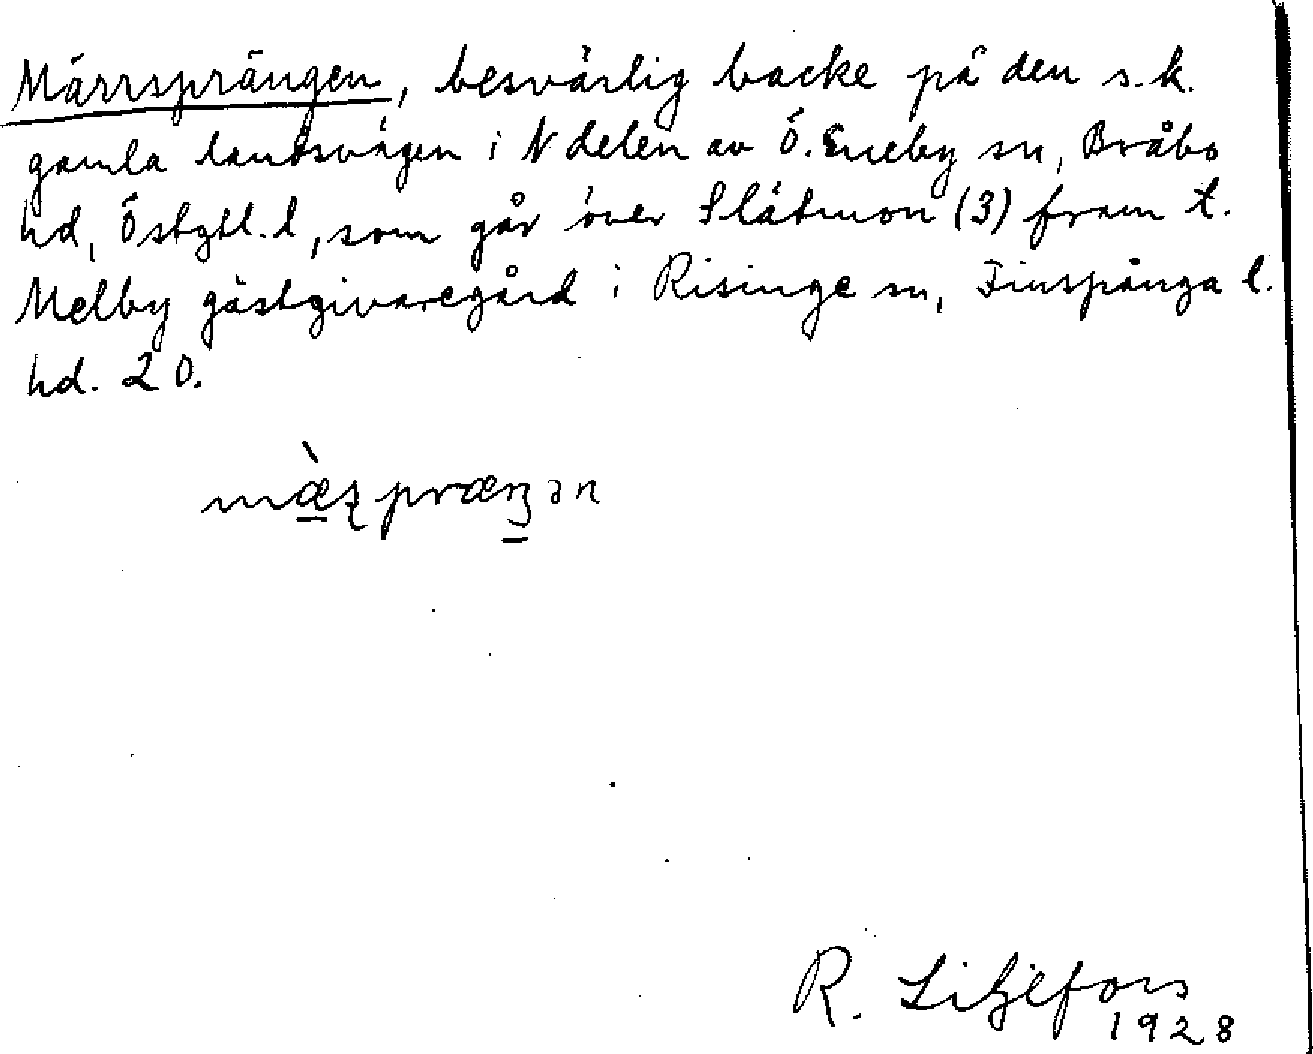 Märrsprängen, besvärlig backe på den s.k.
gamla landsvägen i N delen av Ö. Eneby sn, Bråbo
hd, Östgtl. l, som går över Slätmon (3) fram t.
Melby gästgivaregård i Risinge sn, Finspånga l.
hd. 20.
R. Liljefors
1928